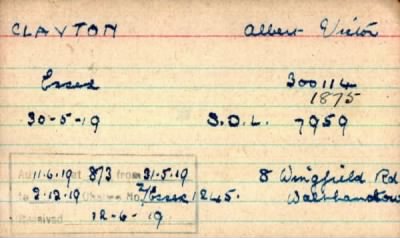 CLAYTON Albert Victor
Essex 300114
1875
30-5-19 S.D.L. 7959
11.6.19 at 8/3 from 31.5.19 8 Wingfield Rd
to 2.12.19 No. 2/Essex 1245. Walthamstow
Received 12-6-19